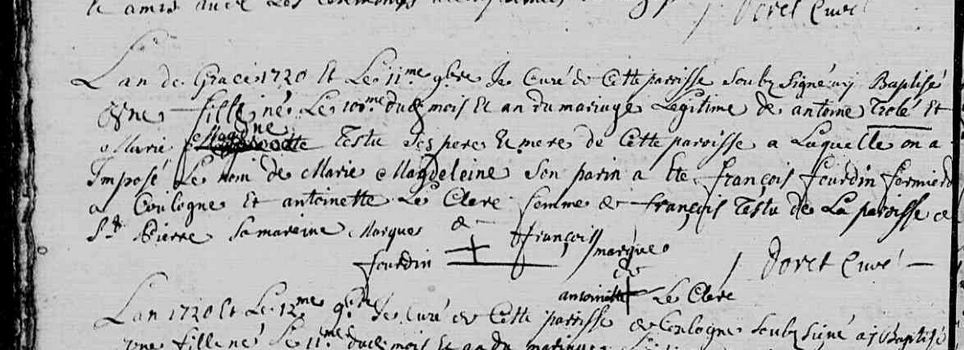 L'an de Grace 1720 et Le 11me 9bre Je Curé de Cette paroisse soubsigné ay Baptisé
une fille né Le 10me dud mois et an du mariage Legitime de antoine Trolé et
Marie Magdne Testu ses pere et mere de Cette paroisse a Laquelle on a
Imposé Le nom de Marie Magdeleine son parin a été françois fourdin fermier
a Coulogne et antoinette Le Clerc femme de françois Testu de La paroisse de
St Pierre sa mareine Marques de françois
fourdin marque de
Doret Curé
antoinette Le Clerc
L'an 1720 et Le 12me 9bre Je Curé de Cette paroisse de Coulogne soubsigné ay Baptisé
une fille né Le 11me dud mois et an du mariage